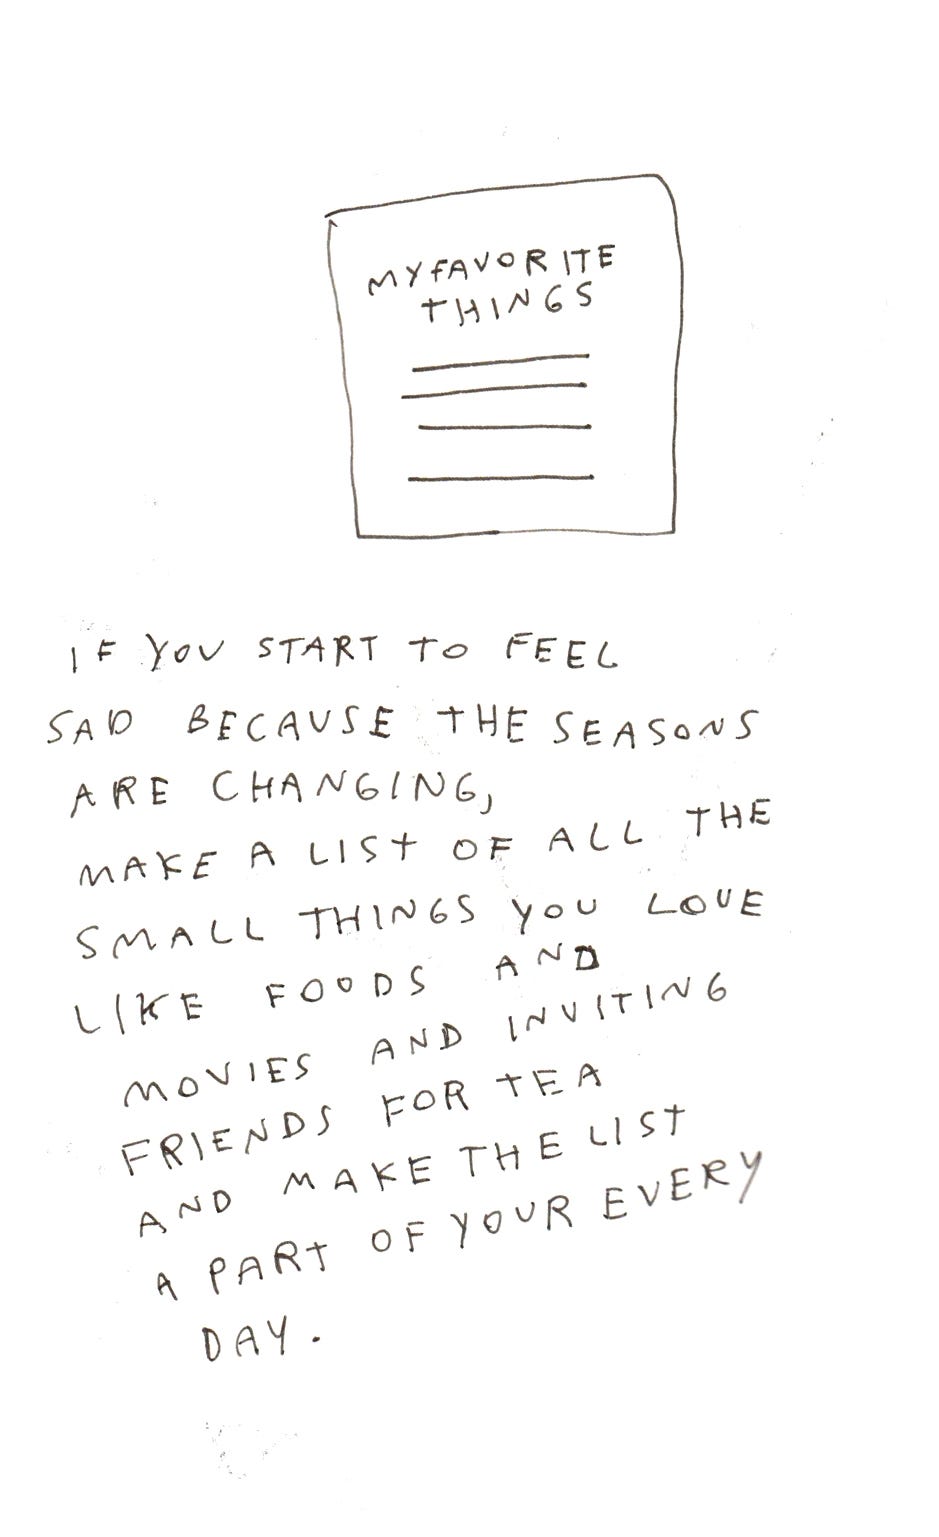 MY FAVORITE
THINGS
IF YOU START TO FEEL
SAD BECAUSE THE SEASONS
ARE CHANGING,
MAKE A LIST OF ALL THE
SMALL THINGS YOU LOVE
LIKE FOODS AND
MOVIES AND INVITING
FRIENDS FOR TEA
AND MAKE THE LIST
A PART OF YOUR EVERY
DAY.